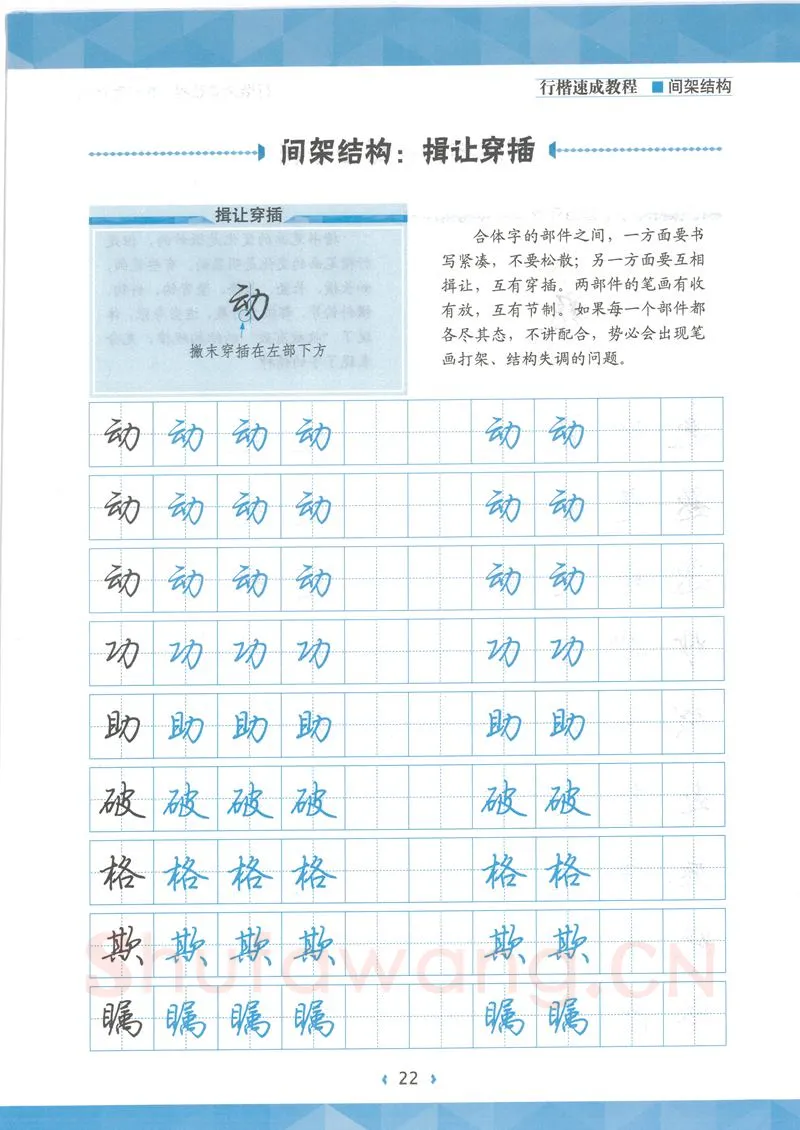 行楷速成教程 ■ 间架结构
间架结构：揖让穿插
揖让穿插
动
撇末穿插在左部下方
合体字的部件之间，一方面要书
写紧凑，不要松散；另一方面要互相
揖让，互有穿插。两部件的笔画有收
有放，互有节制。如果每一个部件都
各尽其态，不讲配合，势必会出现笔
画打架、结构失调的问题。
动 动 动 动 动 动
动 动 动 动 动 动
动 动 动 动 动 动
功 功 功 功 功 功
助 助 助 助 助 助
破 破 破 破 破 破
格 格 格 格 格 格
欺 欺 欺 欺 欺 欺
瞩 瞩 瞩 瞩 瞩 瞩
Shufawang.CN
22